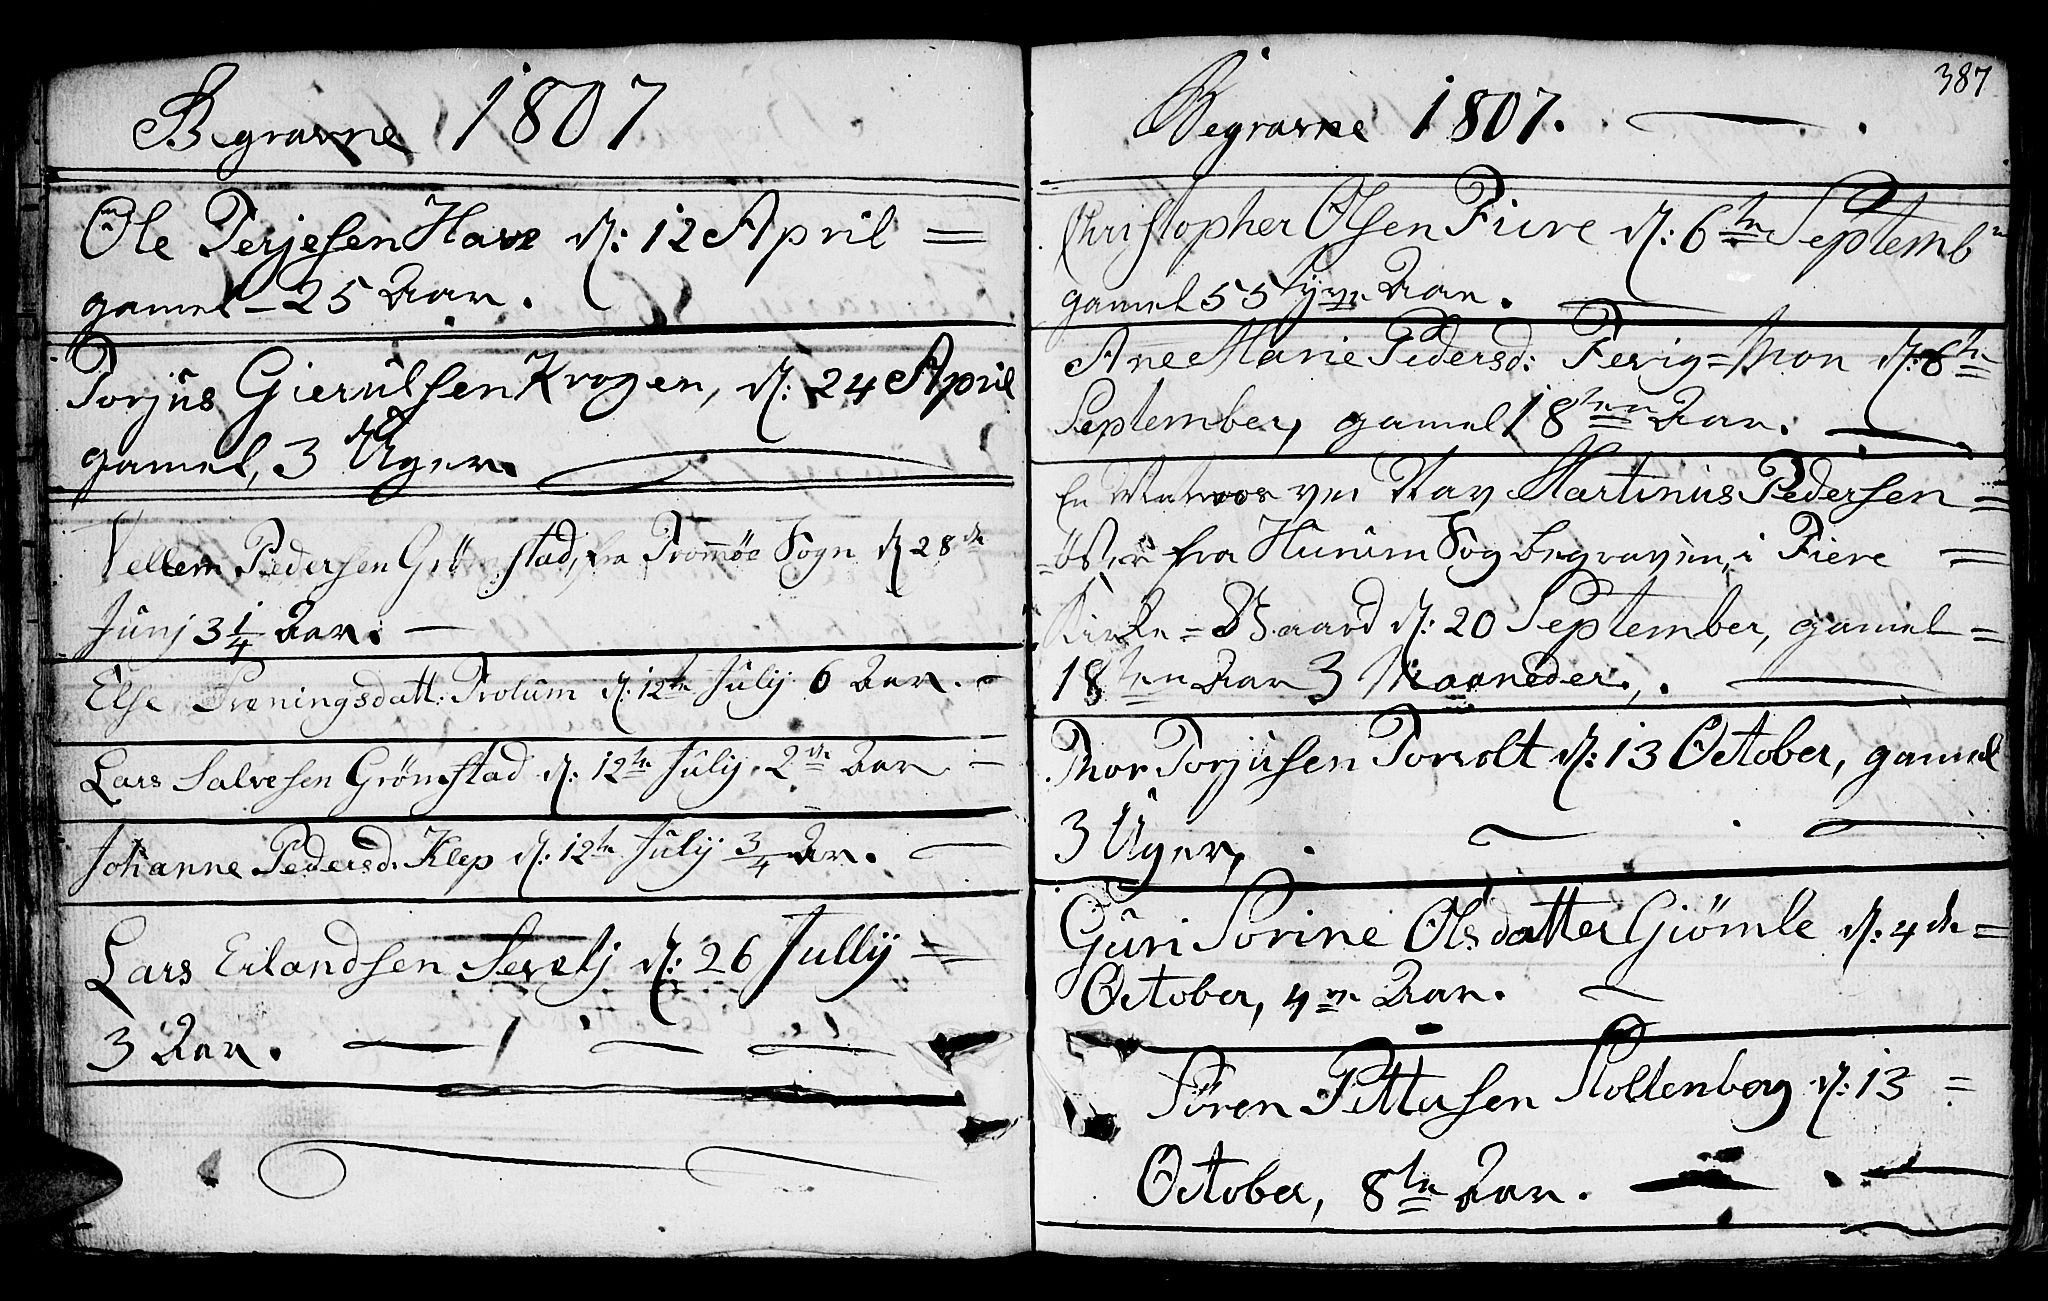 Begravne 1807
Ole Terjesen Have d: 12 April =
gamel - 25 Aar.
Torjus Gierulfsen Krogen, d: 24 April
gamel, 3 Uger.
Vellem Pedersen Grömstad, fra Tromöe Sogn d 28de
Junj 3 1/4 Aar. -
Else Trøningsdatt: Trolum d: 12te Julij 6 Aar. -
Lars Salvesen Grömstad d: 12te Julij 2de Aar -
Johanne Pedersd. Klep d: 12te Julij 3/4 Ar. -
Lars Erlandsen d: 26 Jullij =
3 Aar.
387
Begravne 1807.
Christopher Olsen Fiere d: 6te Septembr
gamel 55 Aar.
Ane Marie Pedersd: Ferig=Mon d: 6te
September, gamel 18ten Aar.
En Matros ved Nav Martinus Pedersen =
fra Hurum Sog begraven, i Fiere =
Kirke = Gaard d: 20 September, gamel =
18ten Aar 3 Maaneder.
Thor Torjusen Torvolt d: 13 October, gamel
3 Uger,
Guri Sorine Olsdatter Giömle d: 4de =
October, 4re Aar.
Sören Pettersen Stoltenberg d: 13 =
October, 8te Aar.